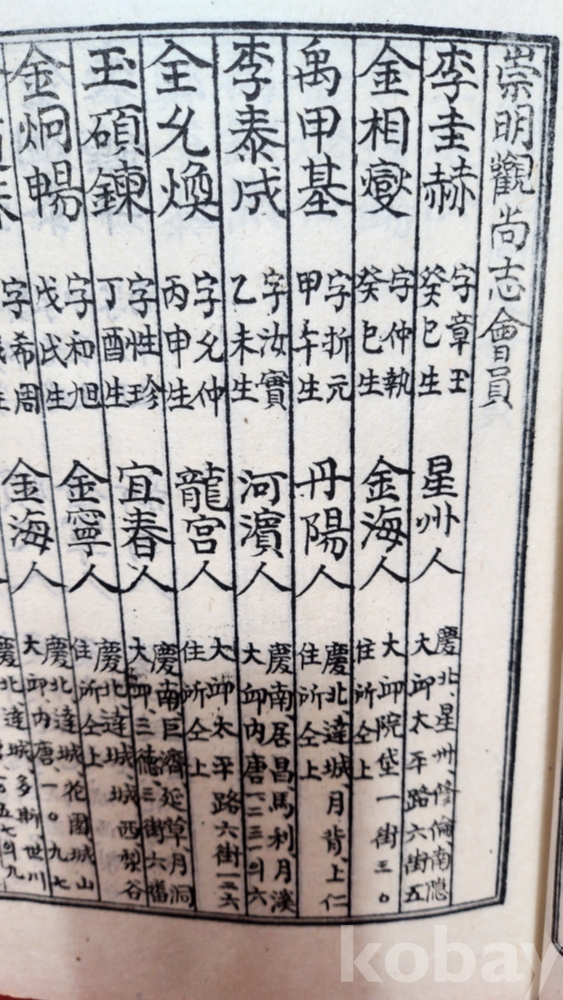 崇明觀尚志會員
李圭赫 字章玉 癸巳生 星州人 慶北、星州、修倫、南隱 大邱太平路六街五
金相燮 字仲執 癸巳生 金海人 大邱院垈一街三〇 住所仝上
禹甲基 字折元 甲午生 丹陽人 慶北達城、月背、上仁 住所仝上
李泰成 字汝實 乙未生 河濱人 慶南、居昌、馬利、月溪 大邱內唐一二三一의六
全允煥 字允仲 丙申生 龍宮人 大邱太平路六街一三六 住所仝上
玉碩鍊 字性珍 丁酉生 宜春人 慶南巨濟、延草、月洞 大邱、三德三街六
金炯暢 字和旭 戊戌生 金寧人 慶北達城、城西、梨谷 住所仝上
字希周 金海人 慶北達城、花園城山 大邱、內唐、一〇九七
慶北達城、多斯、世川
kobay